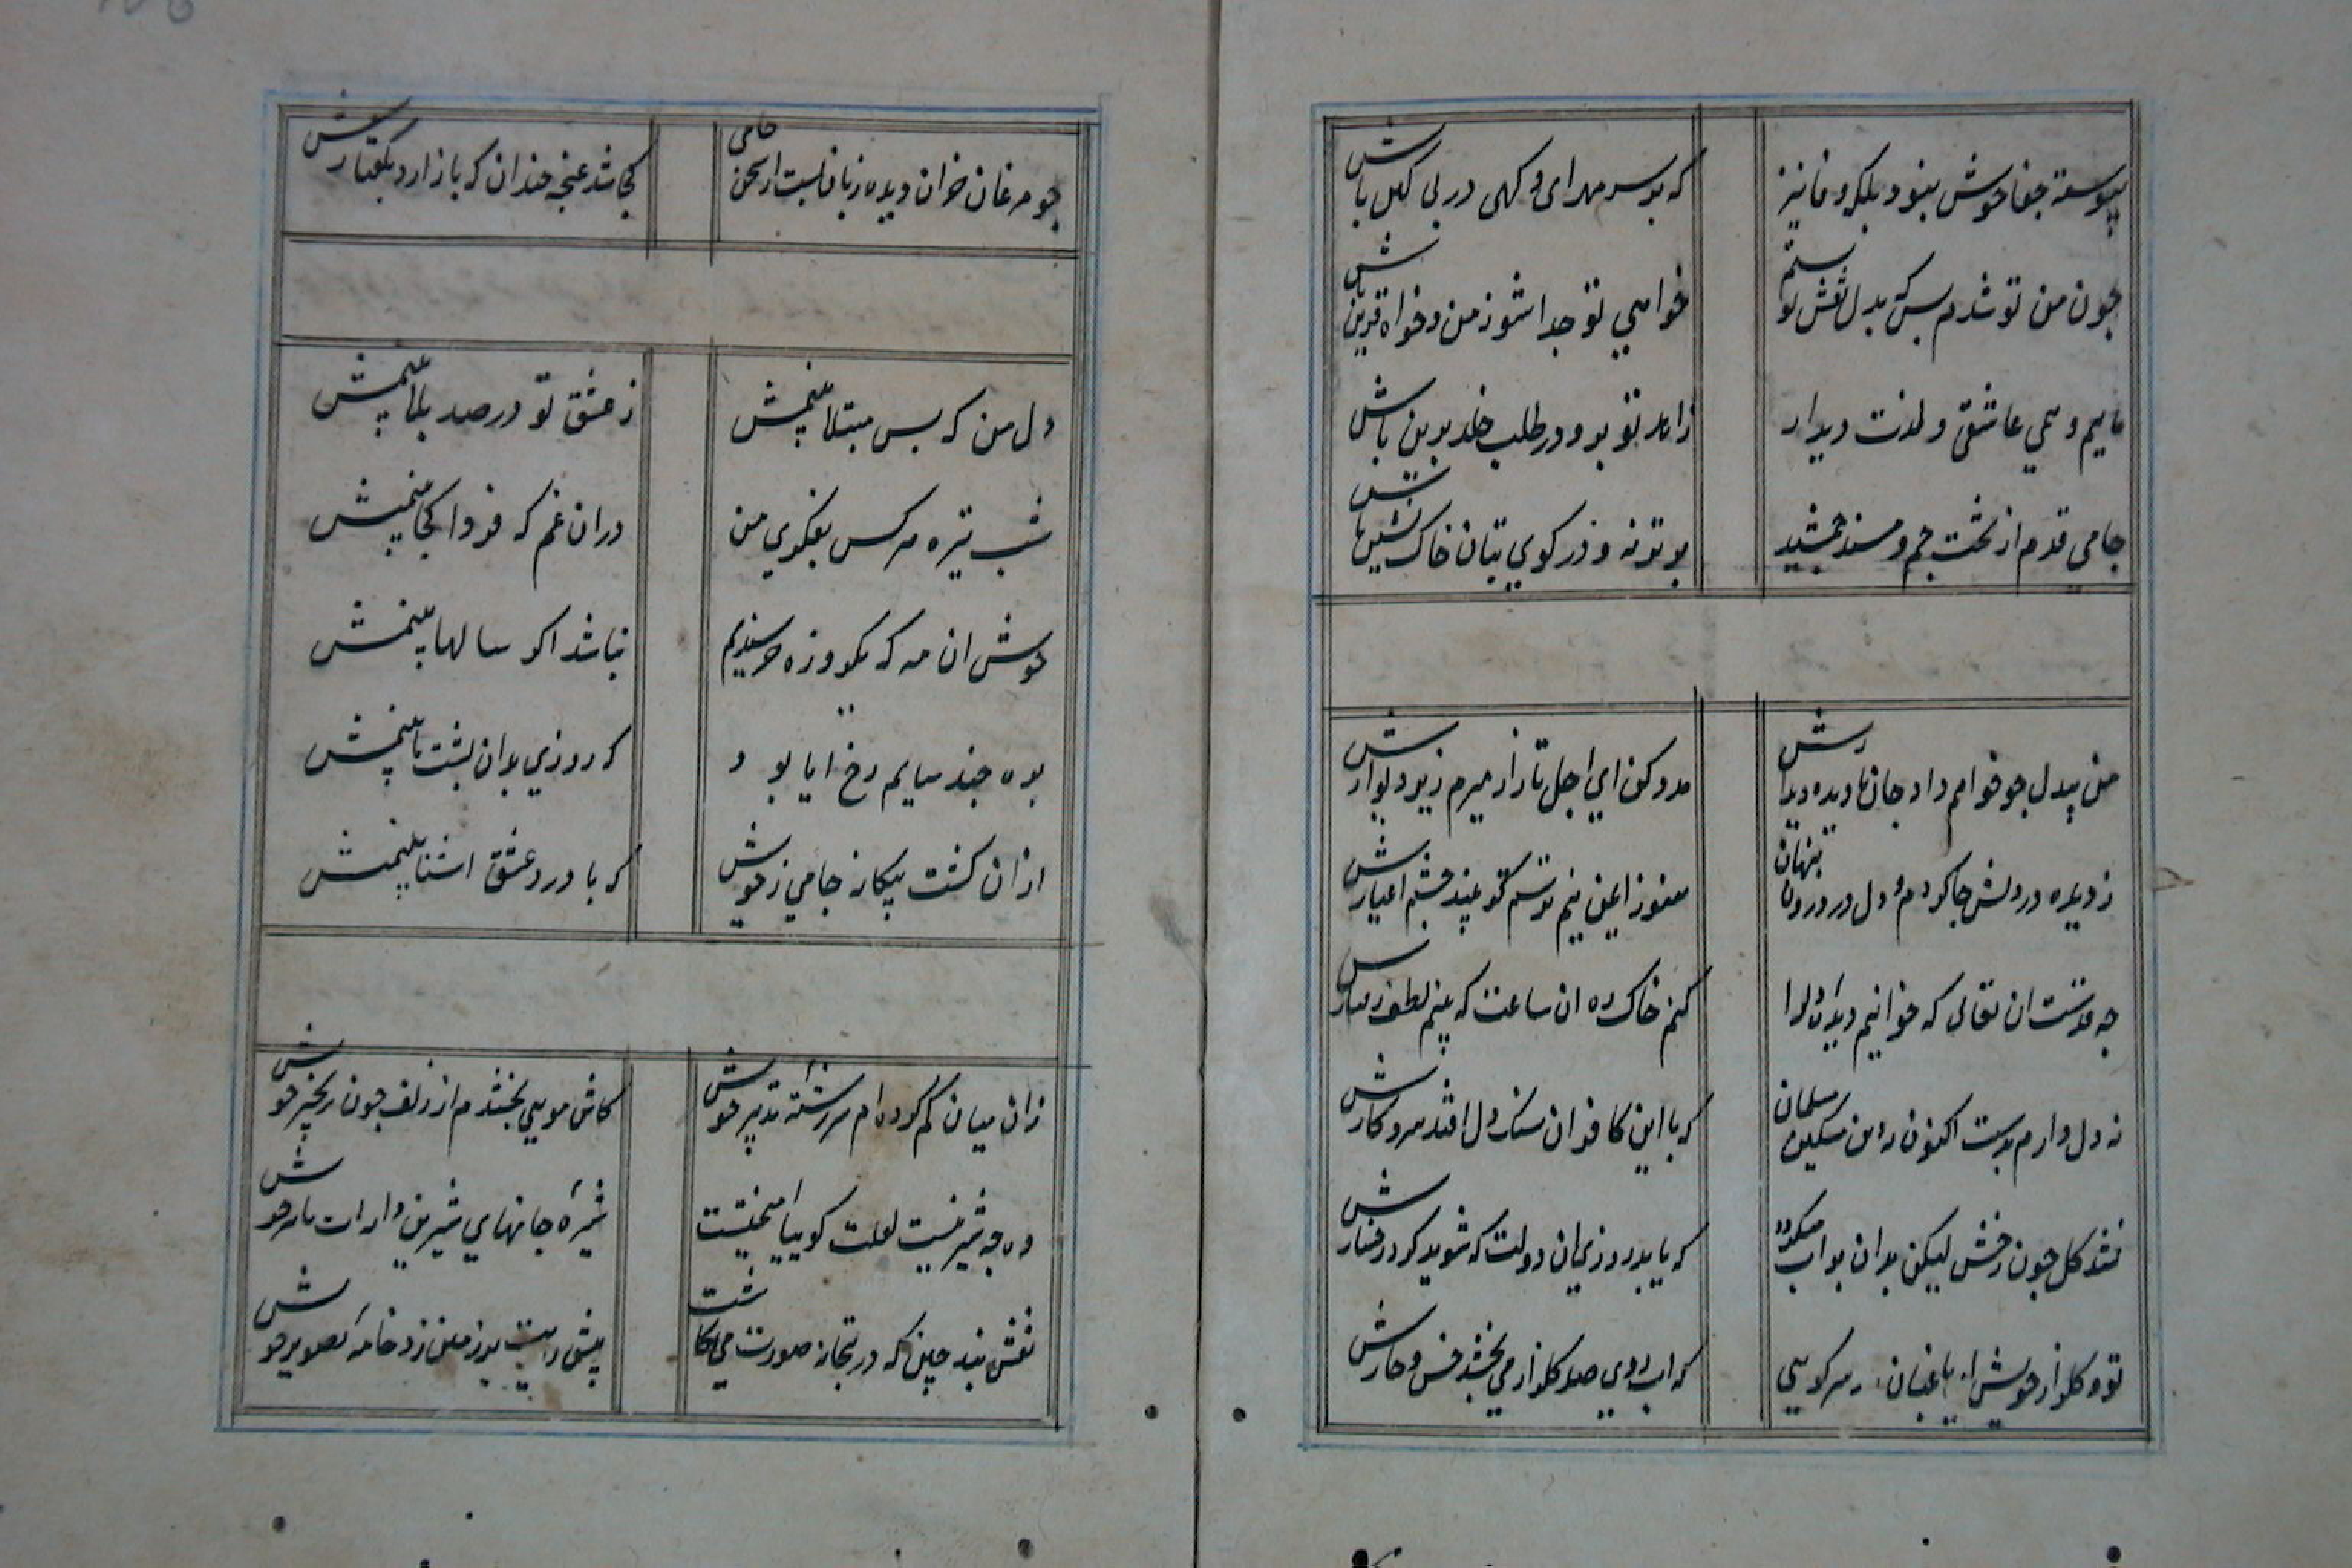 پیوسته جفا خوش نبود بلکه وفا نیز
که بر سر مهر ای و کهی در پی کین باش
چون من تو شدم بس که بدل نقش تو بستم
خواهی تو جدا شو ز من و خواه قرین باش
ماییم و همی عاشقی و لذت دیدار
زاهد تو برو در طلب خلد برین باش
جامی قدم از تخت جم و مسند جمشید
برتر نه و در کوی بتان خاک نشین باش
من بیدل چو خواهم داد جان نادیده دیدارش
مدد کن ای اجل تا زار میرم زیر دیوارش
ز دیده در دلش جا کردم و دل در درون پنهان
هنوز ایمن نیم ترسم که بیند چشم اغیارش
چه قدرست ان تعالی که خوانیم دیده و لرا
کنم خاک ره ان ساعت که بینم لطف رفتارش
نه دل دارم بدست اکنون نه دین مسکین مسلمان
که با این کافران سنک دل افتد سر و کارش
نشد کل چون رخش لیکن بدان بر اب میکردد
که یابد روزی ان دولت که شوید کرد رخسارش
تو و کلزار خویش ای باغبان و سر کویی
که اب روی صد کلزار می بخشد خس و خارش
چو مرغان خزان دیده زبان بست از سخن جامی
کجا شد غنچه خندان که باز ارد بکفتارش
دل من که بس مبتلا بینمش
ز عشق تو در صد بلا بینمش
شب تیره هر کس بفکری من
در ان غم که فردا کجا بینمش
خوش ان مه که یکروزه خرسندیم
نباشد اکر سالها بینمش
بره چند سایم رخ ایا بود
که روزی بدان پشت پا بینمش
ازان کشت بیکانه جامی ز خویش
که با درد عشق اشنا بینمش
زان میان کم کرده ام سررشته تدبیر خویش
کاش مویی بخشدم از زلف چون زنجیر خویش
وه چه شیرینست لعلت کوییا امیختست
شیره جانهای شیرین دایه ات با شیر خویش
نقش بند چین که در بتخانه صورت می نکاشت
پیش رویت بر زمین زد خامه تصویر خویش